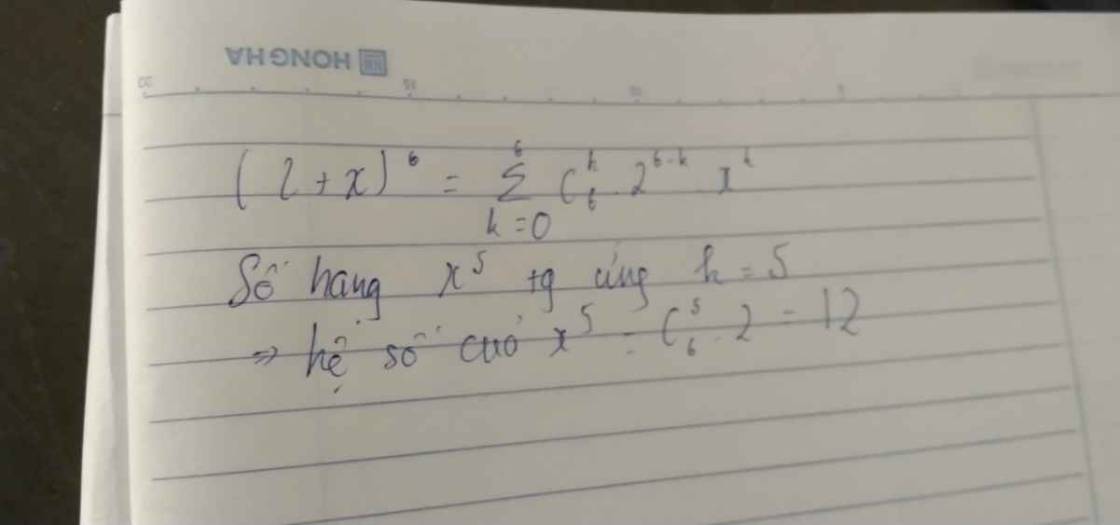 HONG HA
(2+x)^6 = \sum_{k=0}^{6} C_6^k . 2^{6-k} . x^k
Số hang x^5 tg ứng k = 5
=> hệ số của x^5 = C_6^5 . 2 = 12